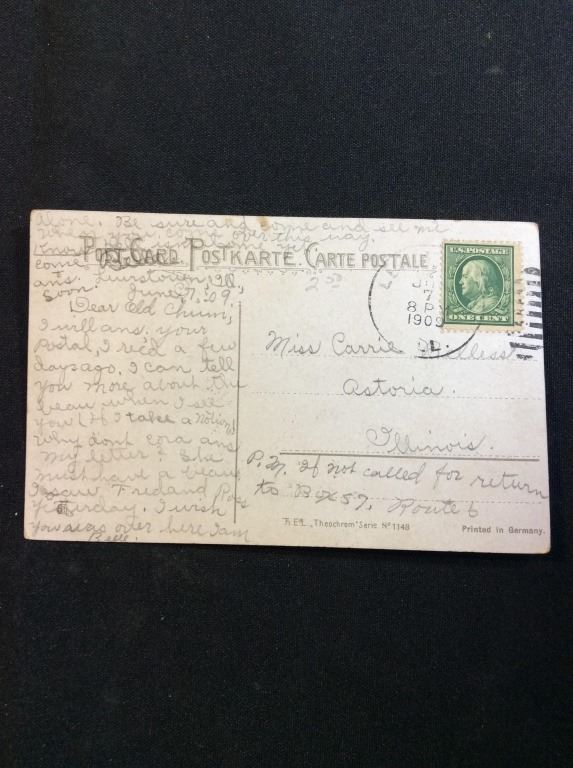 alone. Be sure and come and see me
when you come over this way.
POST CARD POSTKARTE. CARTE POSTALE
ans.
soon. June 7. 09.
Dear Old Chum,
I will ans. your
postal, I rec'd a few
days ago. I can tell
you more about the
beau when I see
you (If I take a notion)
why dont cora ans
my letter? She
must have a beau
I saw Fred and
yesterday. I wish
you was over here I am
Belle.
U.S. POSTAGE
ONE CENT
7
8 P
1909
Miss Carrie
Astoria.
Illinois.
P.M. If not called for return
to Box 57, Route 6
"Theochrom" Serie No 1148
Printed in Germany.